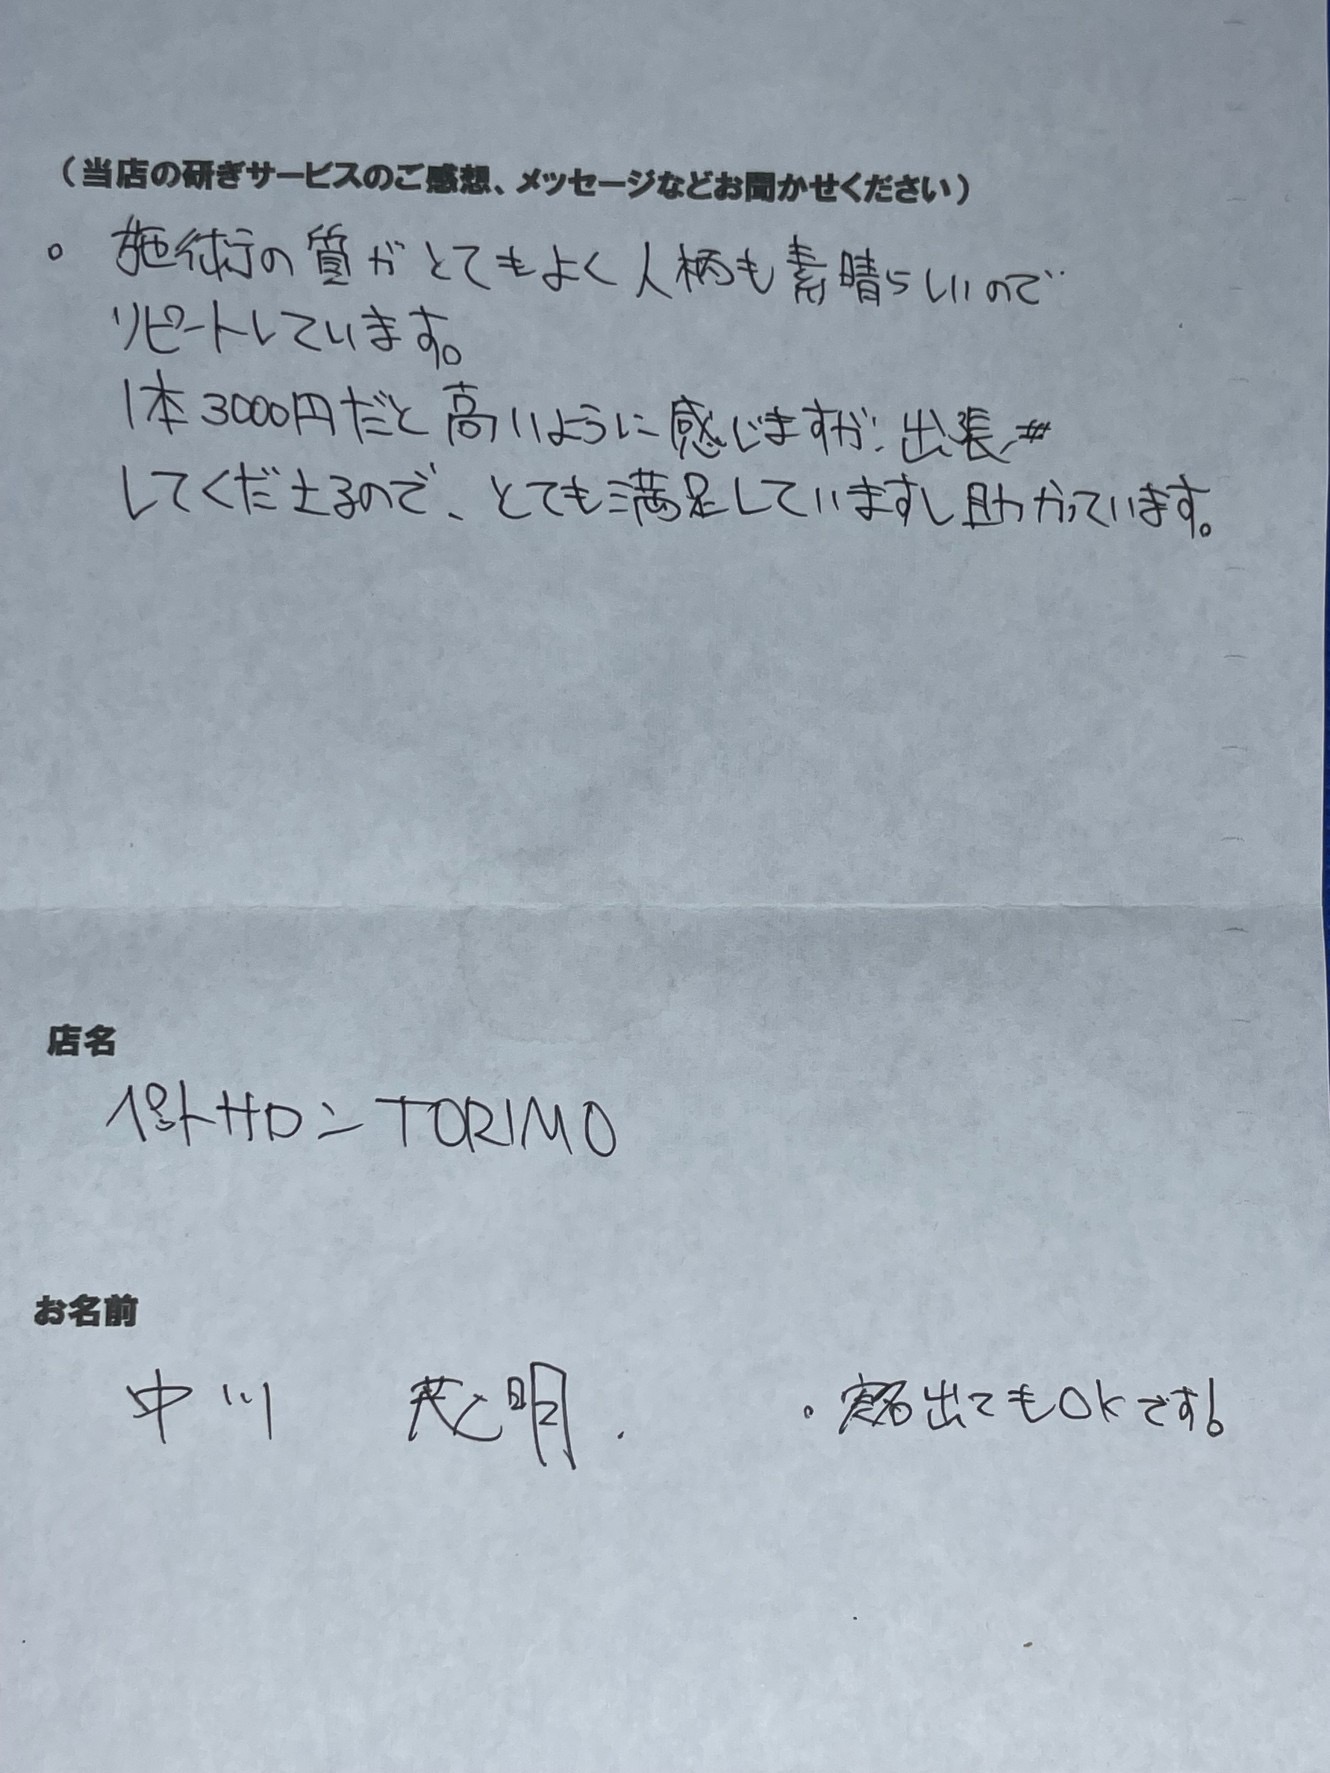 （当店の研ぎサービスのご感想、メッセージなどお聞かせください）
。施術の質がとてもよく人柄も素晴らしいので
リピートしています。
1本3000円だと高いように感じますが、出張
してくださるので、とても満足していますし助かっています。
店名
ペットサロン TORIMO
お名前
中川 茂明.
。実名出てもOKです!